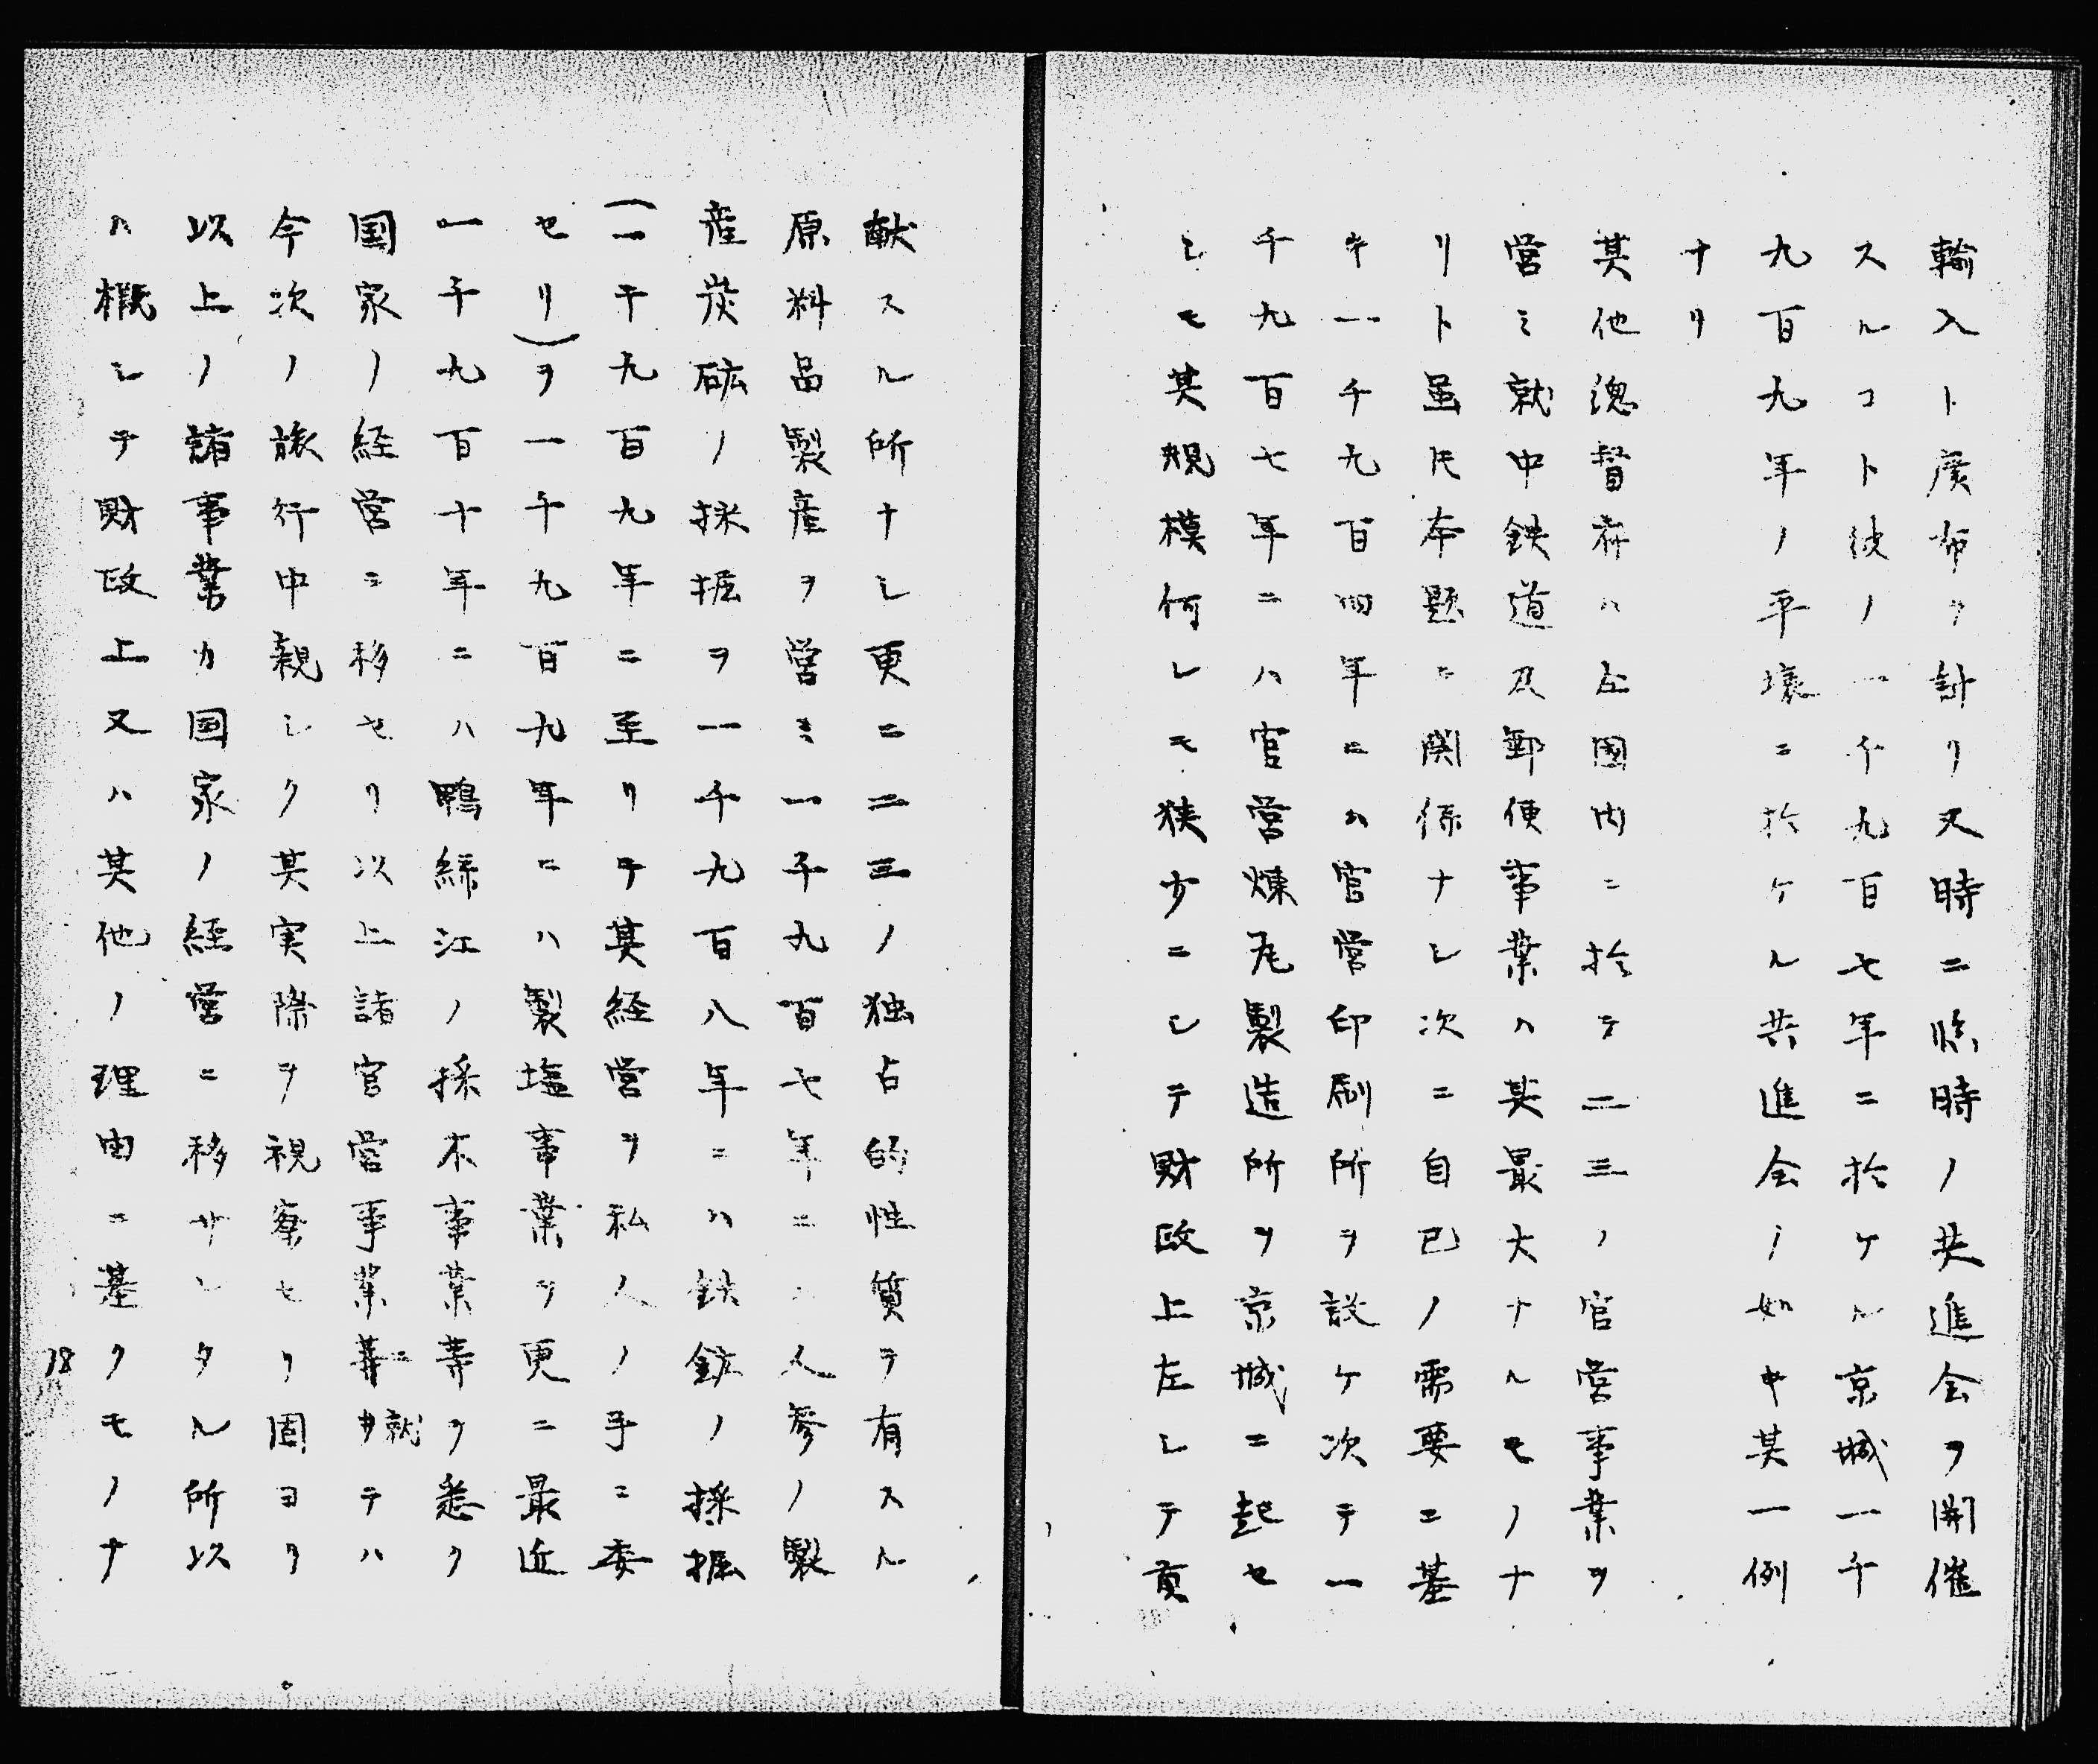 輸入ト広布ヲ計リ又時ニ臨時ノ共進会ヲ開催
スルコト彼ノ一千九百七年ニ於ケル京城一千
九百九年ノ平壌ニ於ケル共進会ノ如キ其一例
ナリ
其他総督府ハ全國内ニ於テ二三ノ官営事業ヲ
営ミ就中鉄道及郵便事業ハ其最大ナルモノナ
リト虽㞮本題ニ関係ナシ次ニ自己ノ需要ニ基
キ一千九百四年ニハ官営印刷所ヲ設ケ次テ一
千九百七年ニハ官営煉瓦製造所ヲ京城ニ起セ
シモ其規模何レモ狭少ニシテ財政上左シテ貢
献スル所ナシ更ニ二三ノ独占的性質ヲ有スル
原料品製産ヲ営ミ一千九百七年ニハ人参ノ製
産炭砿ノ採掘ヲ一千九百八年ニハ鉄鉱ノ採掘
(一千九百九年ニ至リテ其経営ヲ私人ノ手ニ委
セリ)ヲ一千九百九年ニハ製塩事業ヲ更ニ最近
一千九百十年ニハ鴨緑江ノ採木事業等ヲ悉ク
国家ノ経営ニ移セリ以上諸官営事業等ニ就テハ
今次ノ旅行中親シク其実際ヲ視察セリ固ヨリ
以上ノ諸事業カ国家ノ経営ニ移サレタル所以
ハ概シテ財政上又ハ其他ノ理由ニ基クモノナ
18